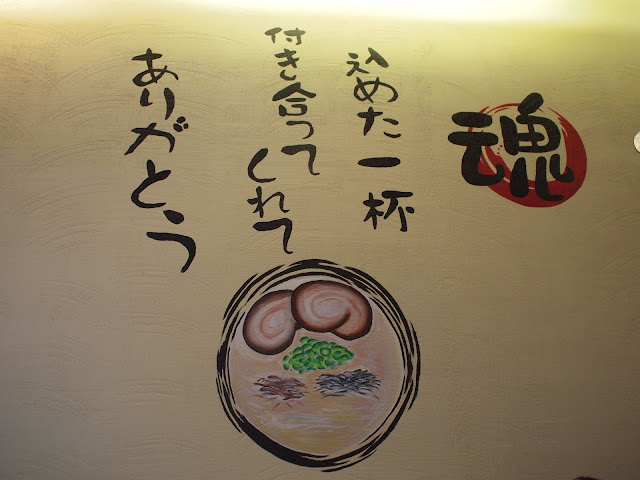 魂
込めた一杯
付き合って
くれて
ありがとう